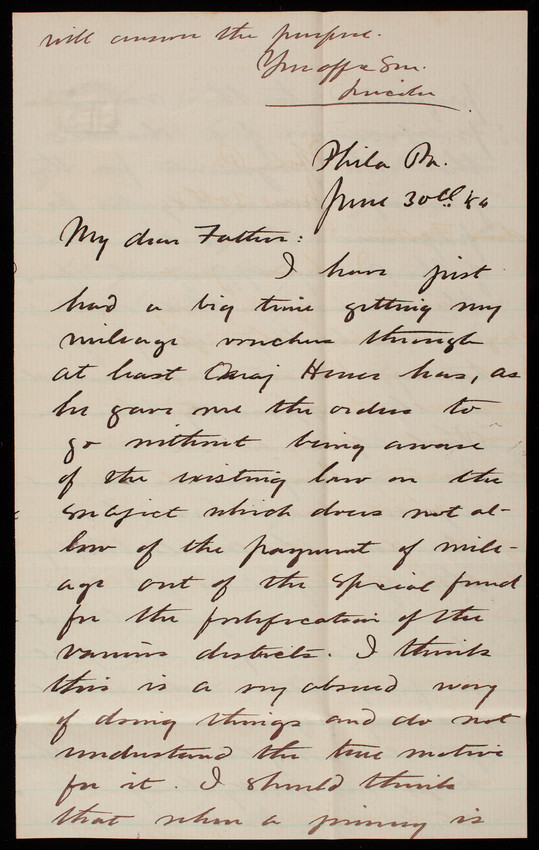 will answer the purpose.
Your aff. Son.
Lincoln
Phila Pa.
June 30th '86
My dear Father:
I have just
had a big time getting my
mileage vouchers through
at least Maj Heuer has, as
he gave me the orders to
go without being aware
of the existing law on the
subject which does not al-
low of the payment of mile-
age out of the special fund
for the fortification of the
various districts. I think
this is a very absurd way
of doing things and do not
understand the true motive
for it. I should think
that when a journey is